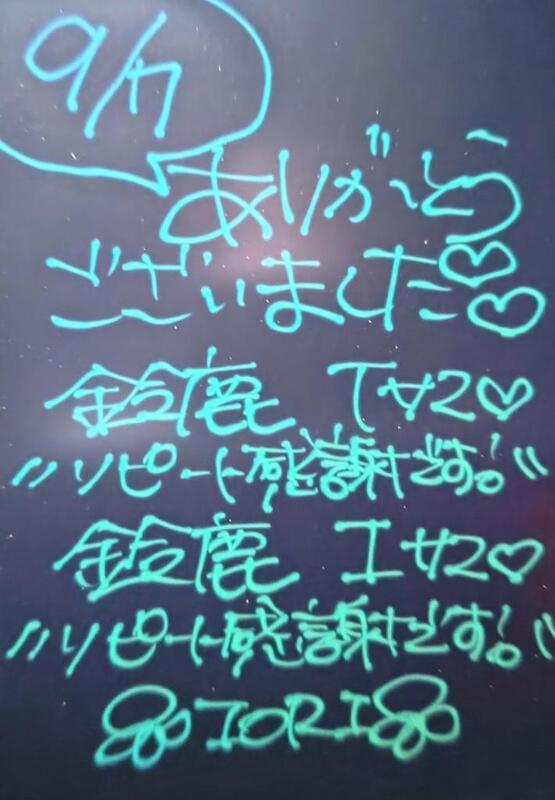 9/7
ありがとう
ございました♡♡
鈴鹿 Tサン♡
"リピート感謝です!"
鈴鹿 Iサン♡
"リピート感謝です!"
IORI